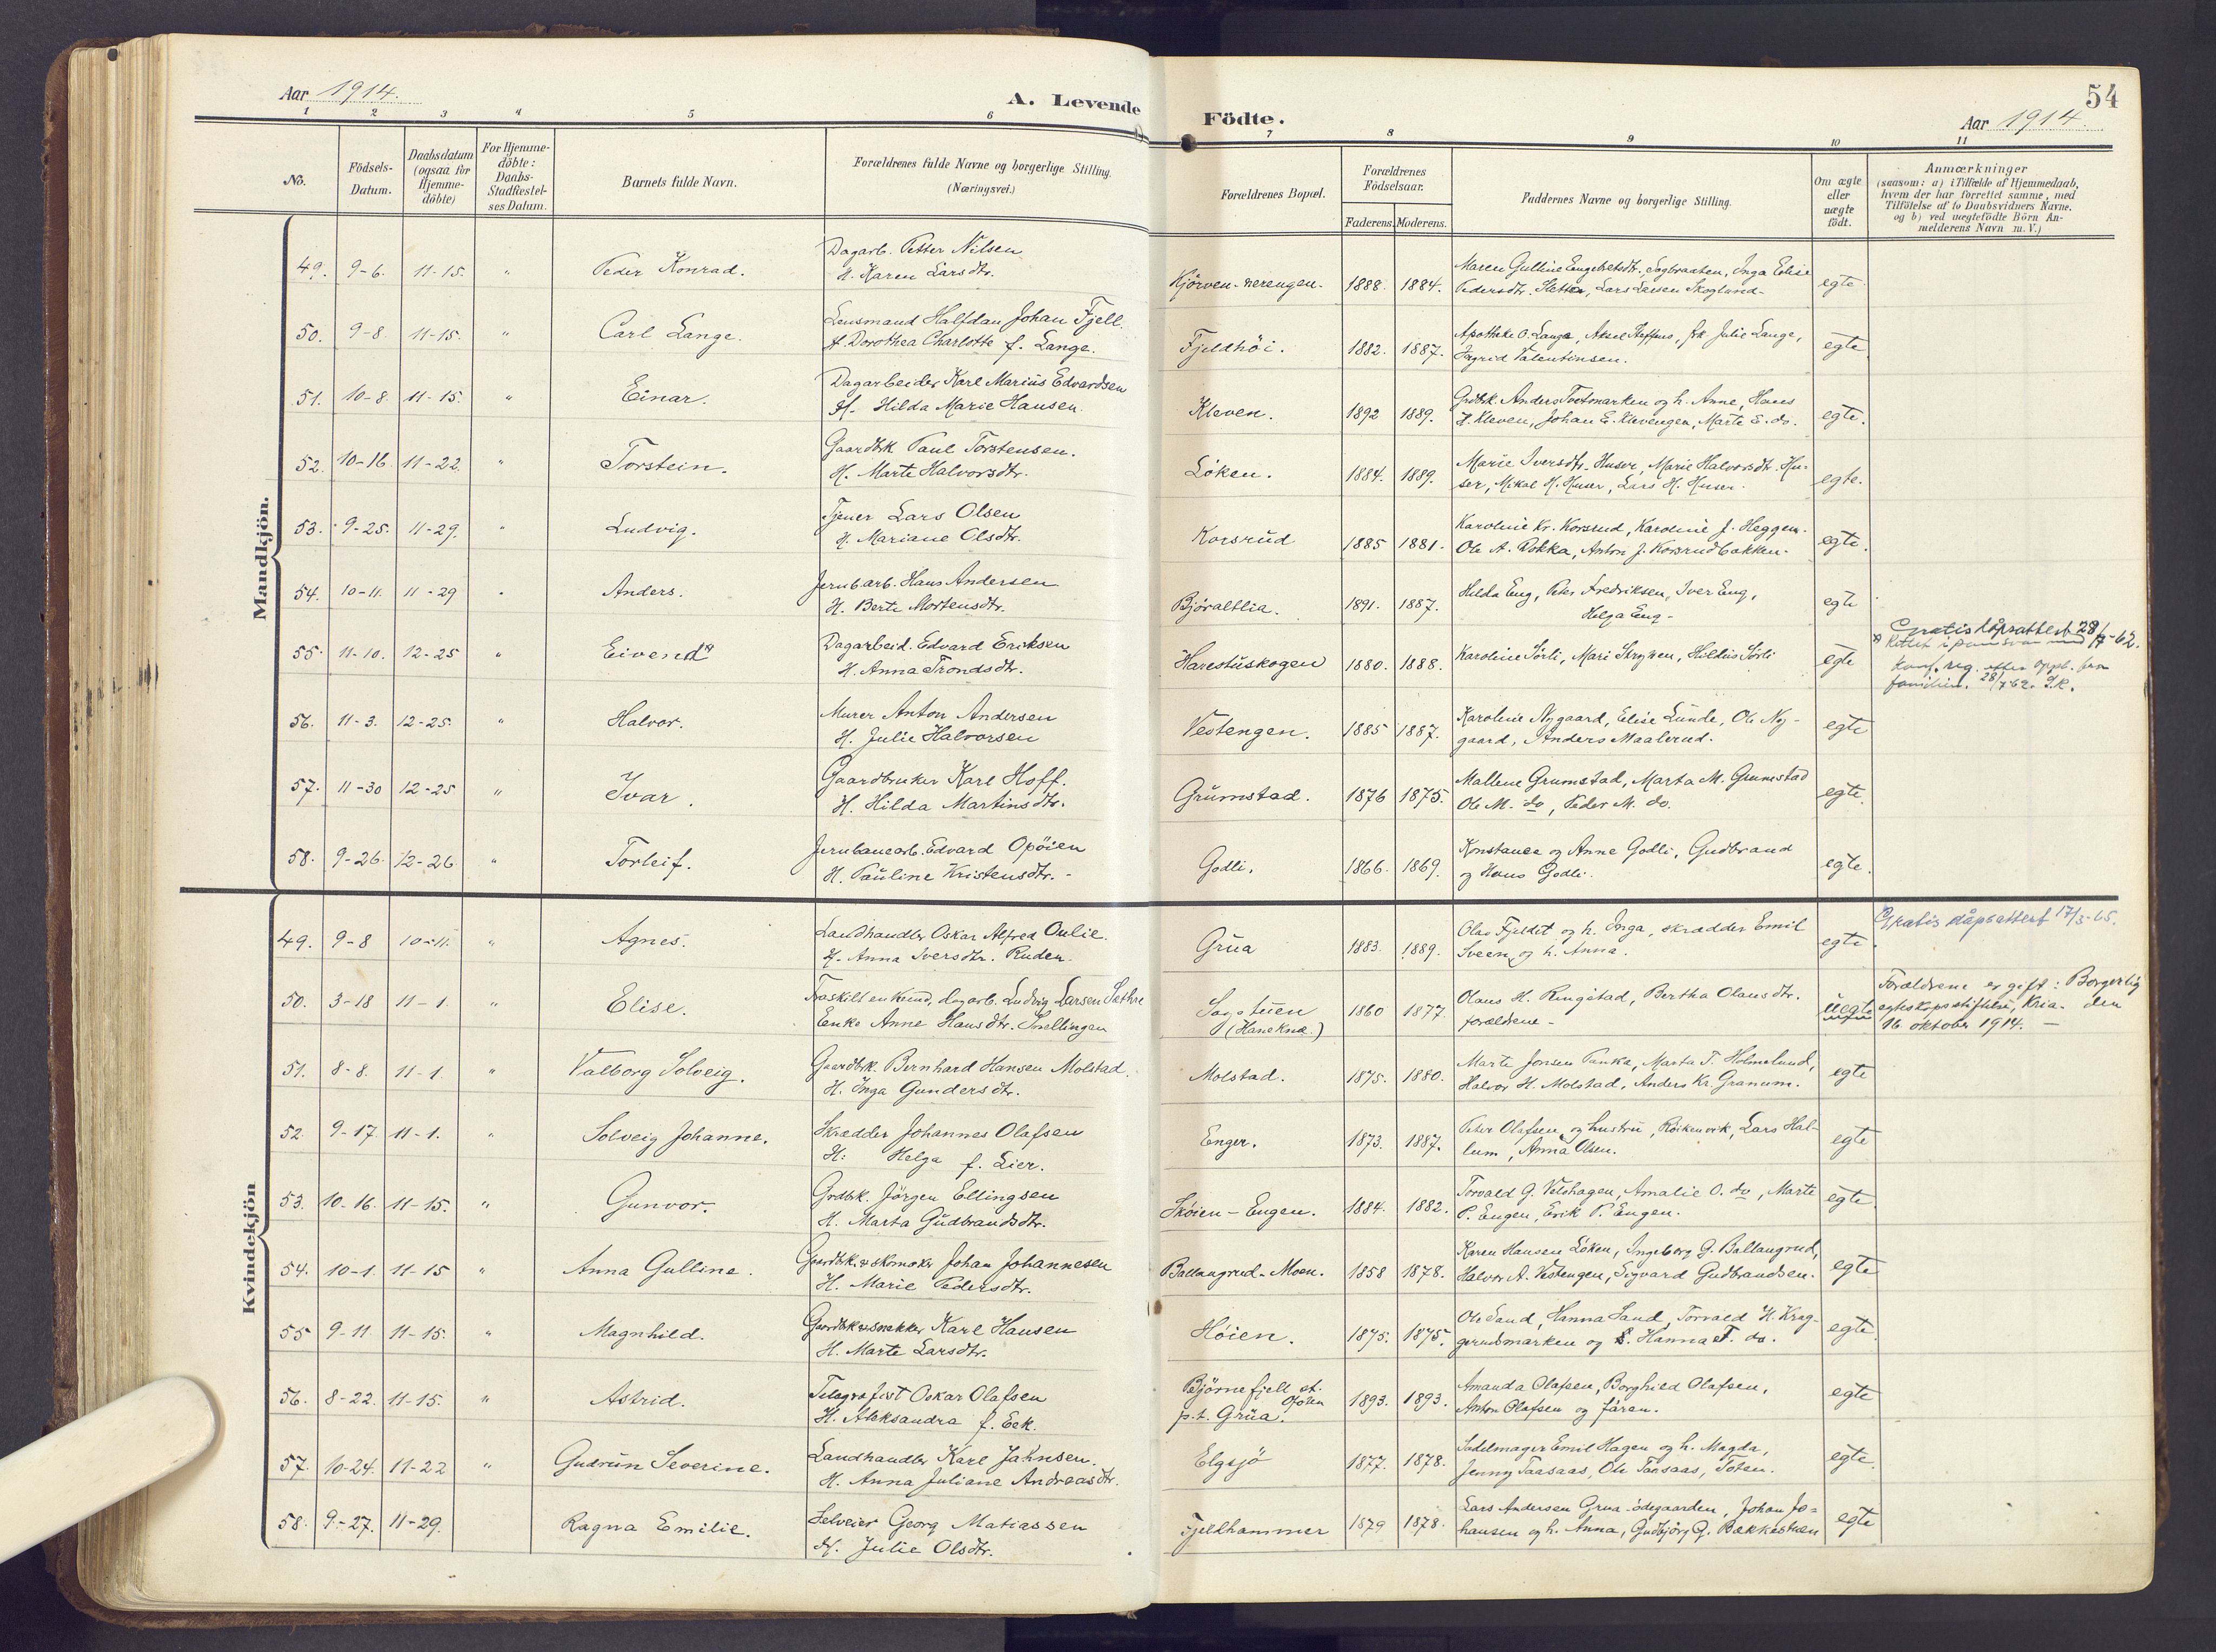 Aar 1914.
A. Levende Födte.
Aar 1914.
54
1 2 3 " 5 6 7 8 9 10 11
No.
Födsels-Datum.
Daabsdatum (ogsaa for Hjemme-döbte)
For Hjemme-döbte: Daabs-Stadfæstel-ses Datum.
Barnets fulde Navn.
Forældrenes fulde Navne og borgerlige Stilling. (Næringsvei.)
Forældrenes Bopæl.
Forældrenes Födselsaar.
Faderens. Moderens.
Faddernes Navne og borgerlige Stilling.
Om ægte eller uægte födt.
Anmærkninger
(saasom: a) i Tilfælde af Hjemmedaab,
hvem der har forrettet samme, med
Tilföielse af to Daabsvidners Navne.
og b) ved uægtefödte Börn An-
melderens Navn m. V.)
Mandkjön.
49. 9-6. 11-15. " Peder Konrad. Dagarb. Petter Nilsen H. Karen Larsdtr. Kjörven-nerengen. 1888. 1884. Maren Gulline Engebretsdtr. Sogbraaten, Inga Elise Pedersdtr. Sletta, Lars Larsen Skoglund- egte.
50. 9-8. 11-15. " Carl Lange. Lensmand Halfdan Johan Fjell. H. Dorothea Charlotte f. Lange. Fjeldhöi. 1882. 1887. Apotheke O. Lange, Aksel Steffens, frk Julie Lange, Ingrid Valentinsen. egte.
51. 10-8. 11-15. " Einar. Dagarbeider Karl Marius Edvardsen H. Hilda Marie Hansen. Kleven. 1892 1889. Grdbk. Anders Tveitmarken og h. Anne, Hans H. Kleven, Johan E. Klevengen, Marte E. do. egte.
52. 10-16. 11-22. " Torstein. Gaardbk Paul Torstensen. H. Marte Halvorsdtr. Löken. 1884. 1889. Marie Iversdtr. Huser, Marie Halvorsdtr. Hu-ser, Mikal H. Huser, Lars H. Huser. egte.
53. 9-25. 11-29. " Ludvig. Tjener Lars Olsen H. Mariane Olsdtr. Korsrud 1885 1881. Karoline Kr. Korsrud, Karoline J. Heggen. Ole A. Dokka, Anton J. Korsrudbakken. egte.
54. 10-11. 11-29 " Anders. Jernb.arb. Hans Andersen H. Berte Mortensdtr. Björaltlia. 1891. 1887. Hilda Eng, Peter Fredriksen, Iver Eng, Helga Eng- egte
55. 11-10. 12-25 " Eivend Dagarbeid. Edvard Eriksen H. Anna Trondsdtr. Harestuskogen 1880. 1888. Karoline Sörli, Mari Stryken, Hildus Sörli egte Gratis dåpsattest 28/7-62. Rettet i samsvar med konf. reg. efter oppl. fra familien. 28/7 62.
56. 11-3. 12-25. " Halvor. Murer Anton Andersen H. Julie Halvorsen Vestengen. 1885 1887. Karoline Nygaard, Elise Lunde, Ole Ny-gaard, Anders Maalerud. egte
57. 11-30 12-25 " Ivar. Gaardbruker Karl Hoff. H. Hilda Martinsdtr. Grumstad. 1876 1875. Mallene Grumstad, Marta M. Grumstad Ole M. do, Peder M. do. egte.
58. 9-26. 12-26. " Torleif. Jernbanearb. Edvard Opöien H. Pauline Kristensdtr. - Godli. 1866. 1869. Konstanse og Anne Godli, Gudbrand og Hans Godli. egte.
Kvindekjön
49. 9-8 10-11. " Agnes. Landhandler Oskar Alfred Oulie. H. Anna Iversdtr. Ruden. Grua 1883. 1889. Olav Fjeldet og h. Inga, skrædder Emil Sveen og h. Anna. egte Gratis dåpsattest 17/5-65.
50. 3-18 11-1. " Elise. Fraskilt enkemd, dagarb. Ludvig Larsen Sæthre Enke Anne Hansdtr. Snellingen Sagstuen (Hanekne.) 1860 1877. Olaus H. Ringstad, Bertha Olausdtr. forældrene - uegte Forældrene er gift: Borgerlig egteskapsstiftelse, Kria. den 16. oktober 1914. -
51. 8-8. 11-1. " Valborg Solveig. Gaardbk. Bernhard Hansen Molstad. H. Inga Gundersdtr. Molstad. 1875. 1880. Marte Jonsen Vanka, Marta T. Holmelund, Halvor H. Molstad, Anders Kr. Granum. egte
52. 9-17. 11-1. " Solveig Johanne. Skrædder Johannes Olafsen H: Helga f. Lier. Enger. 1873. 1887. Peter Olafsen og hustru, Röikenvik, Lars Hal-lum, Anna Olsen. egte
53. 10-16. 11-15. " Gunvor. Grdbk. Jörgen Ellingsen H. Marta Gudbrandsdtr. Sköien-Engen. 1884. 1882. Torvald G. Velshagen, Amalie O. do, Marte P. Engen, Erik P. Engen. egte
54. 10-1. 11-15 " Anna Gulline. Gaardbk. & skomaker Johan Johannesen H. Marie Pedersdtr. Ballangrud-Moen. 1858 1878. Karen Hansen Löken, Ingeborg G. Ballangrud, Halvor A. Vestengen, Sigvard Gudbrandsen. egte
55 9-11 11-15. " Magnhild. Gaardbk & snekker Karl Hansen H. Marte Larsdtr. Höien. 1875. 1875. Ole Sand, Hanna Sand, Torvald H. Krag-gerudmarken og Hanna T. do. egte
56. 8-22. 11-15. " Astrid. Telegrafist Oskar Olafsen H. Aleksandra f. Eek. Björnefjell st. Ofoten p.t. Grua. 1893. 1893. Amanda Olafsen, Borghild Olafsen, Anton Olafsen og faren. egte
57. 10-24. 11-22 " Gudrun Severine. Landhandler Karl Jahnsen. H. Anna Juliane Andreasdtr. Elgsjö 1877. 1878. Sadelmager Emil Hagen og h. Magda, Jenny Taasaas, Ole Taasaas, Toten. egte.
58. 9-27. 11-29. Ragna Emilie. Selveier Georg Matiassen H. Julie Olsdtr. Fjeldhammer 1879 1878. Lars Andersen Grua-ödegaarden, Johan Jo-hansen og h. Anna, Gudbjörg G. Bækkestuen egte